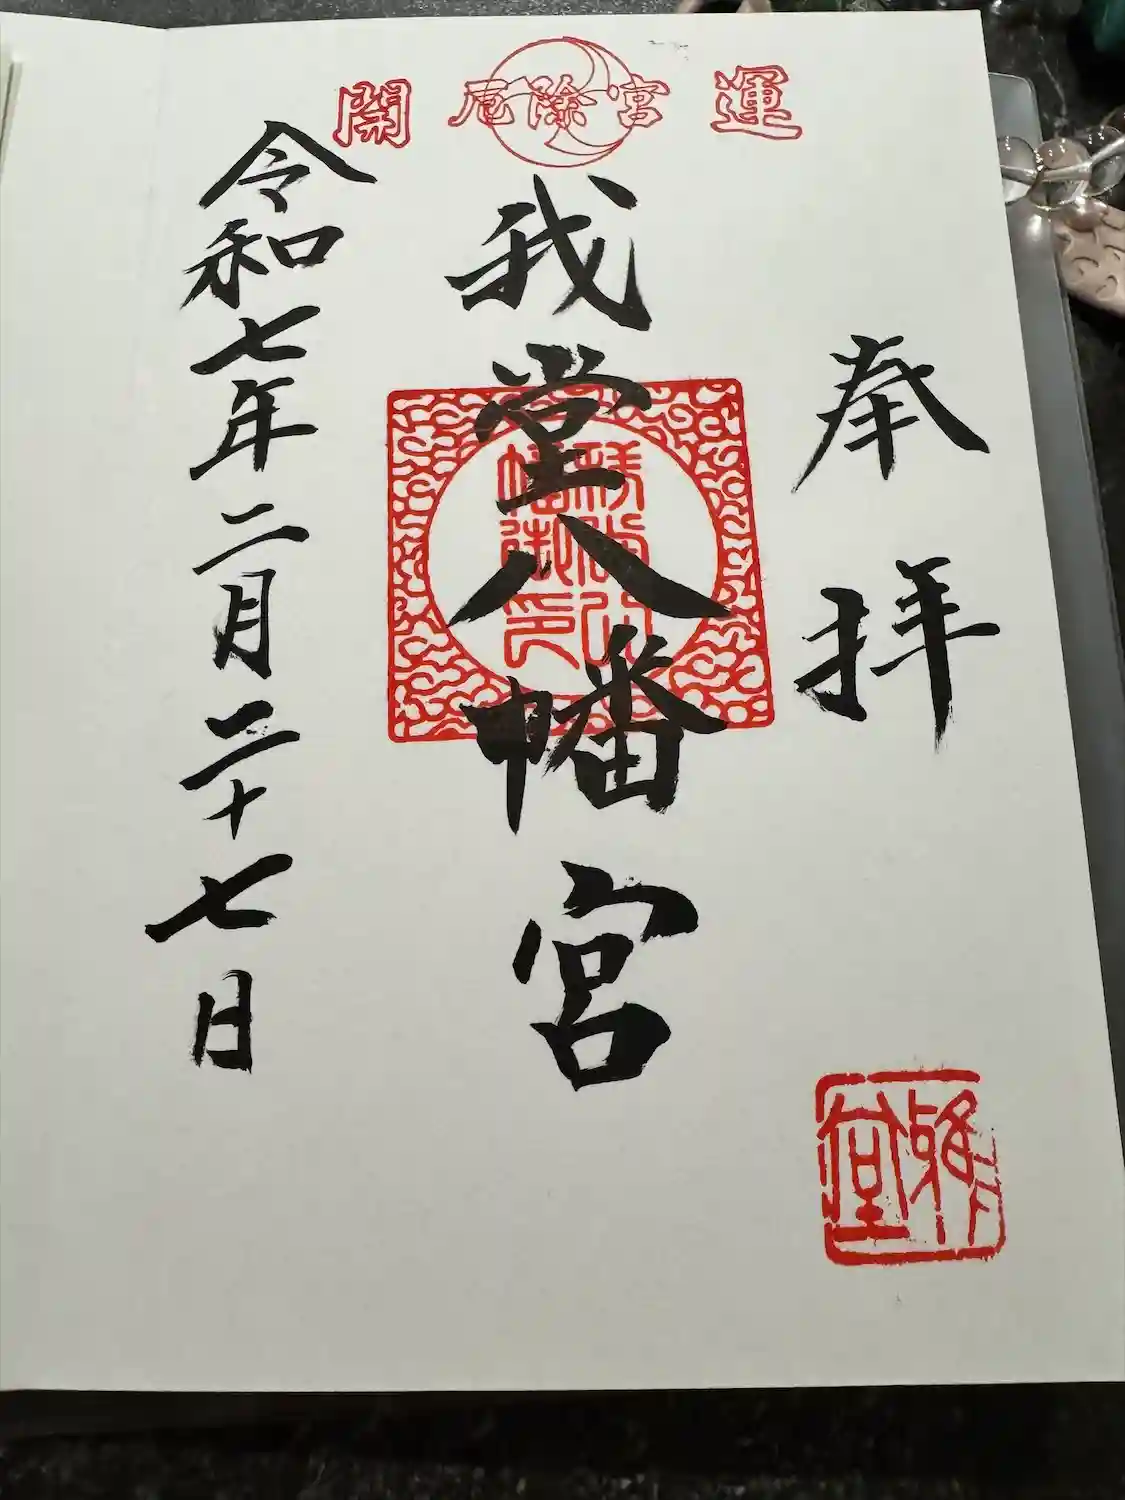 開 厄除宮 運
奉拝
我堂八幡宮
令和七年二月二十七日